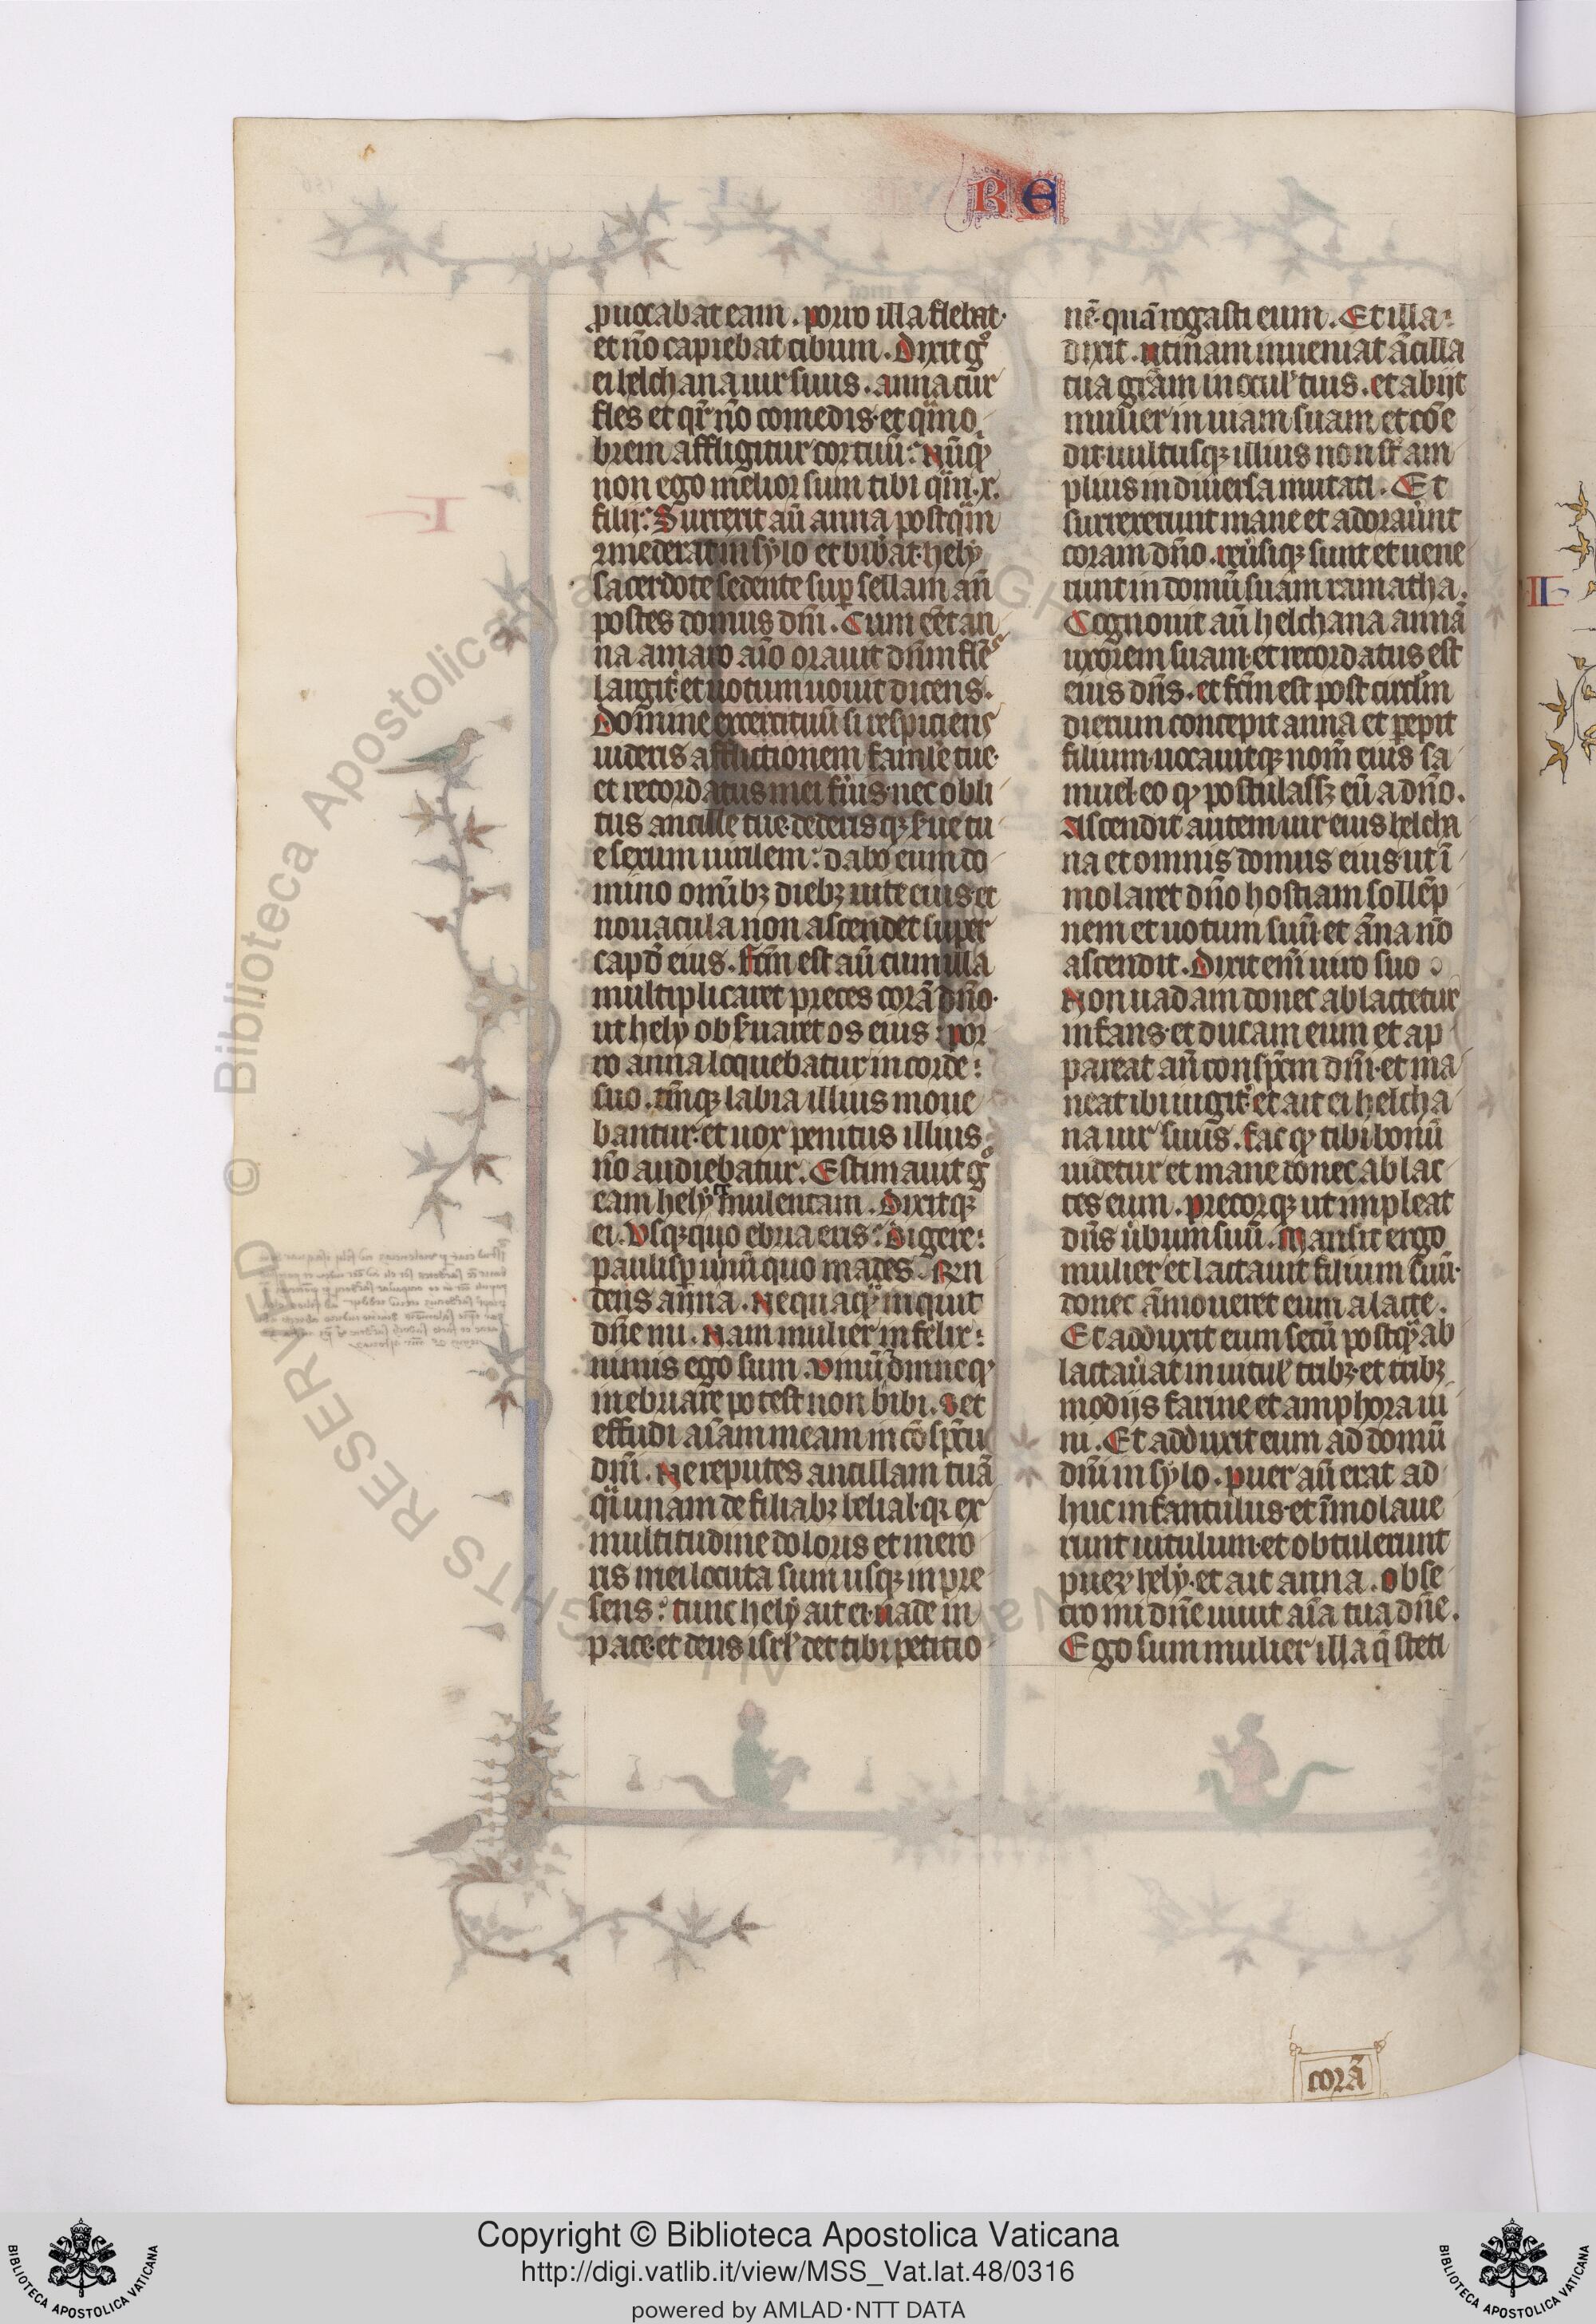 R E
ꝓuocabat eam. porro illa flebat.
et nõ capiebat cibum. Dixit gͦ
ei helchana uir suus. anna cur
fles et qͣr nõ comedis. et qͣmo
brem affligitur cor tuũ: Nũꝙ
non ego melior sum tibi qͣm .x.
filii: Surrexit aũ anna postqͣm
ꝯmederat in sylo et bibãt. hely
sacerdote sedente suꝑ sellam añ
postes domus dñi. Cum eẽt an
na amaro aĩo orauit dñm flẽs
largiẗ. et uotum uouit dicens.
Domine exercituũ si respiciens
uideris afflictionem famule tue.
et recordatus mei fũis. nec obli
tus ancille tue. dederisqꝫ s̃ue tu
e sexum uirilem: dabo eum do
mino omĩbꝫ diebꝫ uite eius. et
nouacula non ascendet super
capᷣ eius. Fc̃m est aũ cum illa
multiplicaret preces corã dño.
ut hely obs̃uaret os eius: por
ro anna loquebatur in corde:
suo. tm̃qꝫ labia illius moue
bantur. et uox penitus illius
nõ audiebatur. Estimauit gͦ
eam hely temulentam. Dixitqꝫ
ei. Vsqꝫquo ebria eris: Digere:
paulisꝑ uinũ quo mades. Rn
dens anna. Nequaqͣ inquit
dñe mi. Nam mulier infelix:
nimis ego sum. Vinũ omne ꝙ
inebriare potest non bibi. Set
effudi aĩam meam in cõspc̃tu
dñi. Ne reputes ancillam tuã
qͣi unam de filiabꝫ belial. qꝛ ex
multitudine doloris et mero
ris mei locuta sum usqꝫ in pre
sens: tunc hely ait ei. uade in
pace. et deus isrl̃ det tibi petitio
nẽ. quã rogasti eum. Et illa:
dixit. utinam inueniat ãcilla
tua grãm in ocul̃ tuis. et abijt
mulier in uiam suam. et cõe
dit. uultusqꝫ illius non st̃ am
plius in diuersa mutati. Et
surrexerunt mane et adorauũt
coram dño. reũsiqꝫ sunt et uene
runt in domũ suam ramatha.
Cognouit aũ helchana annã
uxorem suam. et recordatus est
eius dñs. et fc̃m est post circl̃m
dierum concepit anna et peꝑit
filium. uocauitqꝫ nom̃ eius sa
muel. eo ꝙ postulassꝫ eũ a dño.
Ascendit autem uir eius helcha
na et omnis domus eius ut ĩ
molaret dño hostiam sollẽp
nem et uotum suũ. et ãna nõ
ascendit. Dixit eñi uiro suo
Non uadam donec ablactetur
infans. et ducam eum et ap
pareat añ conspc̃m dñi. et ma
neat ibi iugiẗ. et ait ei helcha
na uir suus. Fac ꝙ tibi bonũ
uidetur et mane donec ablac
tes eum. precorqꝫ ut impleat
dñs ũbum suũ. Mansit ergo
mulier et lactauit filium suũ.
donec ãmoueret eum a lacte.
Et adduxit eum secũ postqͣ ab
lactaũat in uitul̃ tribꝫ. et tribꝫ
modijs farine et amphora ui
ni. Et adduxit eum ad domũ
dñi in sylo. puer aũ erat ad
huc infantulus. et ĩmolaue
runt uitulum. et obtulerunt
pueꝝ hely. et ait anna. obse
cro mi dñe uiuit aĩa tua dñe.
Ego sum mulier illa q̃ steti
corã
II
Copyright © Biblioteca Apostolica Vaticana
http://digi.vatlib.it/view/MSS_Vat.lat.48/0316
powered by AMLAD·NTT DATA
BIBLIOTECA APOSTOLICA VATICANA
BIBLIOTECA APOSTOLICA VATICANA